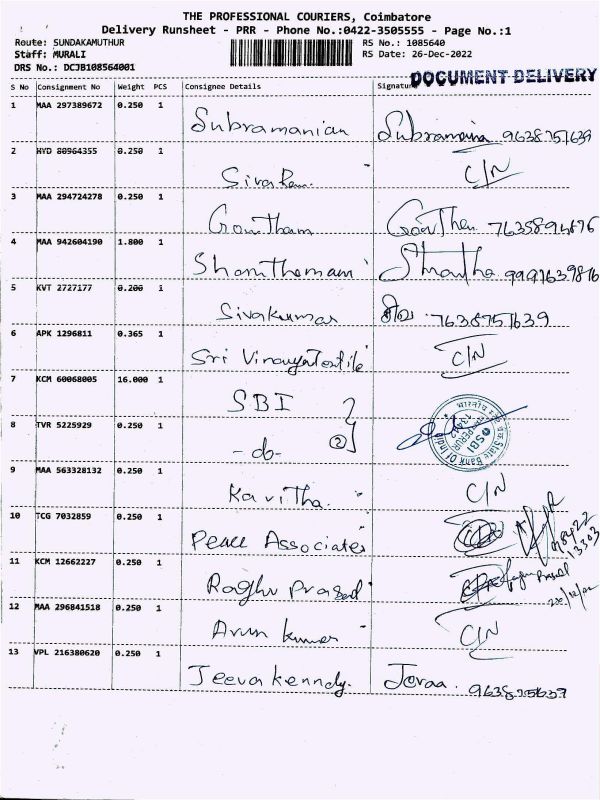 THE PROFESSIONAL COURIERS, Coimbatore
Delivery Runsheet - PRR - Phone No.:0422-3505555 - Page No.:1
Route: SUNDAKAMUTHUR RS No.: 1085640
Staff: MURALI RS Date: 26-Dec-2022
DRS No.: DCJB108564001
DOCUMENT DELIVERY
S No Consignment No Weight PCS Consignee Details Signature
1 MAA 297389672 0.250 1
Subramanian Subramania 9638751639
2 HYD 80964355 0.250 1
Sivaram C/N
3 MAA 294724278 0.250 1
Gowtham Gowtham 7635894876
4 MAA 942604190 1.800 1
Shanthamani Shantha
5 KVT 2727177 0.200 1
Sivakumar சிவ 7638751639
6 APK 1296811 0.365 1
Sri Vinayaga Textile C/N
7 KCM 60068005 16.000 1
SBI
8 TVR 5225929 0.250 1
-do- 2
State Bank Of India SBI PERUR
9 MAA 563328132 0.250 1
Kavitha C/N
10 TCG 7032859 0.250 1
Peace Associates 98422
13303
11 KCM 12662227 0.250 1
Raghu Prasad
12 MAA 296841518 0.250 1
Arun kumar C/N
13 VPL 216380620 0.250 1
Jeeva kennedy. Jevaa. 9638751639